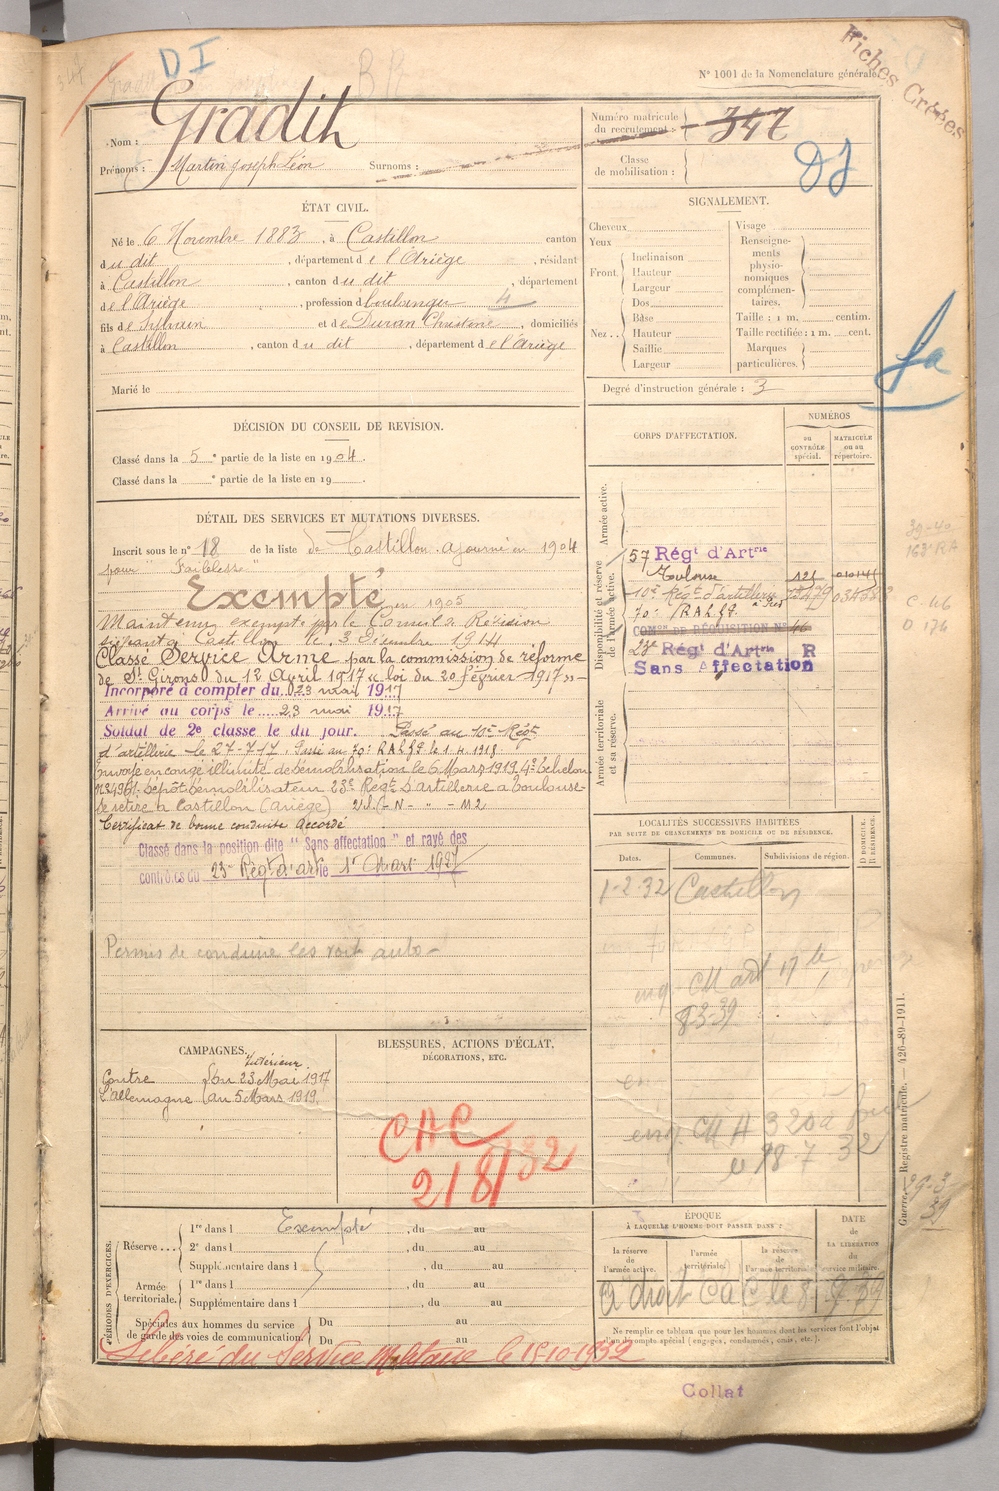 DI
N° 1001 de la Nomenclature générale.
Fiches Créées
Nom : Gradit
Prénoms : Martin Joseph Léon Surnoms :
Numéro matricule du recrutement : 347
Classe de mobilisation :
DJ
ÉTAT CIVIL.
Né le 6 Novembre 1883, à Castillon canton
du dit, département de l'Ariège, résidant
à Castillon, canton du dit, département
de l'Ariège, profession d boulanger 4
fils de Sylvain et de Duran Christine, domiciliés
à Castillon, canton du dit, département de l'Ariège
Marié le
SIGNALEMENT.
Cheveux
Yeux
Front Inclinaison
Hauteur
Largeur
Nez Dos
Base
Hauteur
Saillie
Largeur
Visage
Renseignements physionomiques complémentaires.
Taille : 1 m. centim.
Taille rectifiée : 1 m. cent.
Marques particulières.
Degré d'instruction générale : 3
DÉCISION DU CONSEIL DE REVISION.
Classé dans la 5e partie de la liste en 1904.
Classé dans la e partie de la liste en 19 .
DÉTAIL DES SERVICES ET MUTATIONS DIVERSES.
Inscrit sous le n° 18 de la liste de Castillon. ajourné en 1904
pour "Faiblesse"
Exempté en 1905
Maintenu exempté par le Conseil de Révision
siégeant à Castillon le 3 Décembre 1914
Classé Service Armé par la commission de réforme
de St Girons du 12 Avril 1917 « loi du 20 février 1917 »
Incorporé à compter du 23 mai 1917
Arrivé au corps le 23 mai 1917
Soldat de 2e classe le du jour. Passé au 10e Régt
d'artillerie le 27-7-17. Passé au 70e RALGP le 1.4.1918.
Envoyé en congé illimité de démobilisation le 6 Mars 1919 4e Echelon
Dépôt démobilisateur 23e Régt d'artillerie à Toulouse
Se retire à Castillon (Ariège)
Certificat de bonne conduite Accordé
Classé dans la position dite "Sans affectation" et rayé des
contrôles du 23e Régt d'artie 1er Mars 1927
Permis de conduire les voit auto
CORPS D'AFFECTATION.
NUMÉROS
au CONTRÔLE spécial.
MATRICULE ou au répertoire.
Armée active.
Disponibilité et réserve de l'armée active.
Armée territoriale et sa réserve.
57 Régt d'Artrie
Toulouse
10e Rég. d'artillerie
70e RALGP
COMon DE RÉQUISITION N° 46
23e Régt d'Artrie R
Sans Affectation
LOCALITÉS SUCCESSIVES HABITÉES
PAR SUITE DE CHANGEMENTS DE DOMICILE OU DE RÉSIDENCE.
Dates. Communes. Subdivisions de région.
D DOMICILE. R RÉSIDENCE.
1-2-32 Castillon
CAMPAGNES.
Contre l'Allemagne
Intérieur
Du 23 Mai 1917
au 5 Mars 1919.
BLESSURES, ACTIONS D'ÉCLAT,
DÉCORATIONS, ETC.
CAC
2/8/32
PÉRIODES D'EXERCICES.
Réserve
1re dans l Exempté, du au
2e dans l , du au
Supplémentaire dans l , du au
Armée territoriale.
1re dans l , du au
Supplémentaire dans l , du au
Spéciales aux hommes du service de garde des voies de communication
Du au
Du au
ÉPOQUE
À LAQUELLE L'HOMME DOIT PASSER DANS :
la réserve de l'armée active.
l'armée territoriale.
la réserve de l'armée territoriale.
DATE de LA LIBÉRATION du service militaire.
Ne remplir ce tableau que pour les hommes dont les services font l'objet
d'un décompte spécial (engagés, condamnés, omis, etc.).
Libéré du Service Militaire le 15-10-1932
Guerre. — Registre matricule. — 426-89-1911.
Collat